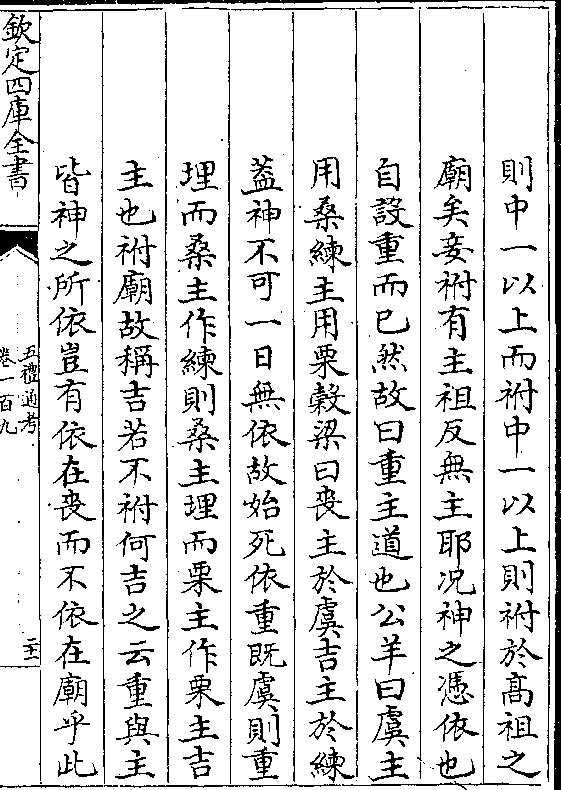 則中一以上而祔中一以上則祔於髙祖之
廟矣妾祔有主祖反無主耶况神之憑依也
自設重而已然故曰重主道也公羊曰虞主
用桑練主用栗榖梁曰喪主於虞吉主於練
葢神不可一日無依故始死依重既虞則重
埋而桑主作練則桑主埋而栗主作栗主吉
主也祔廟故稱吉若不祔何吉之云重與主
皆神之所依豈有依在喪而不依在廟乎此
欽定四庫全書
五禮通考
卷一百九